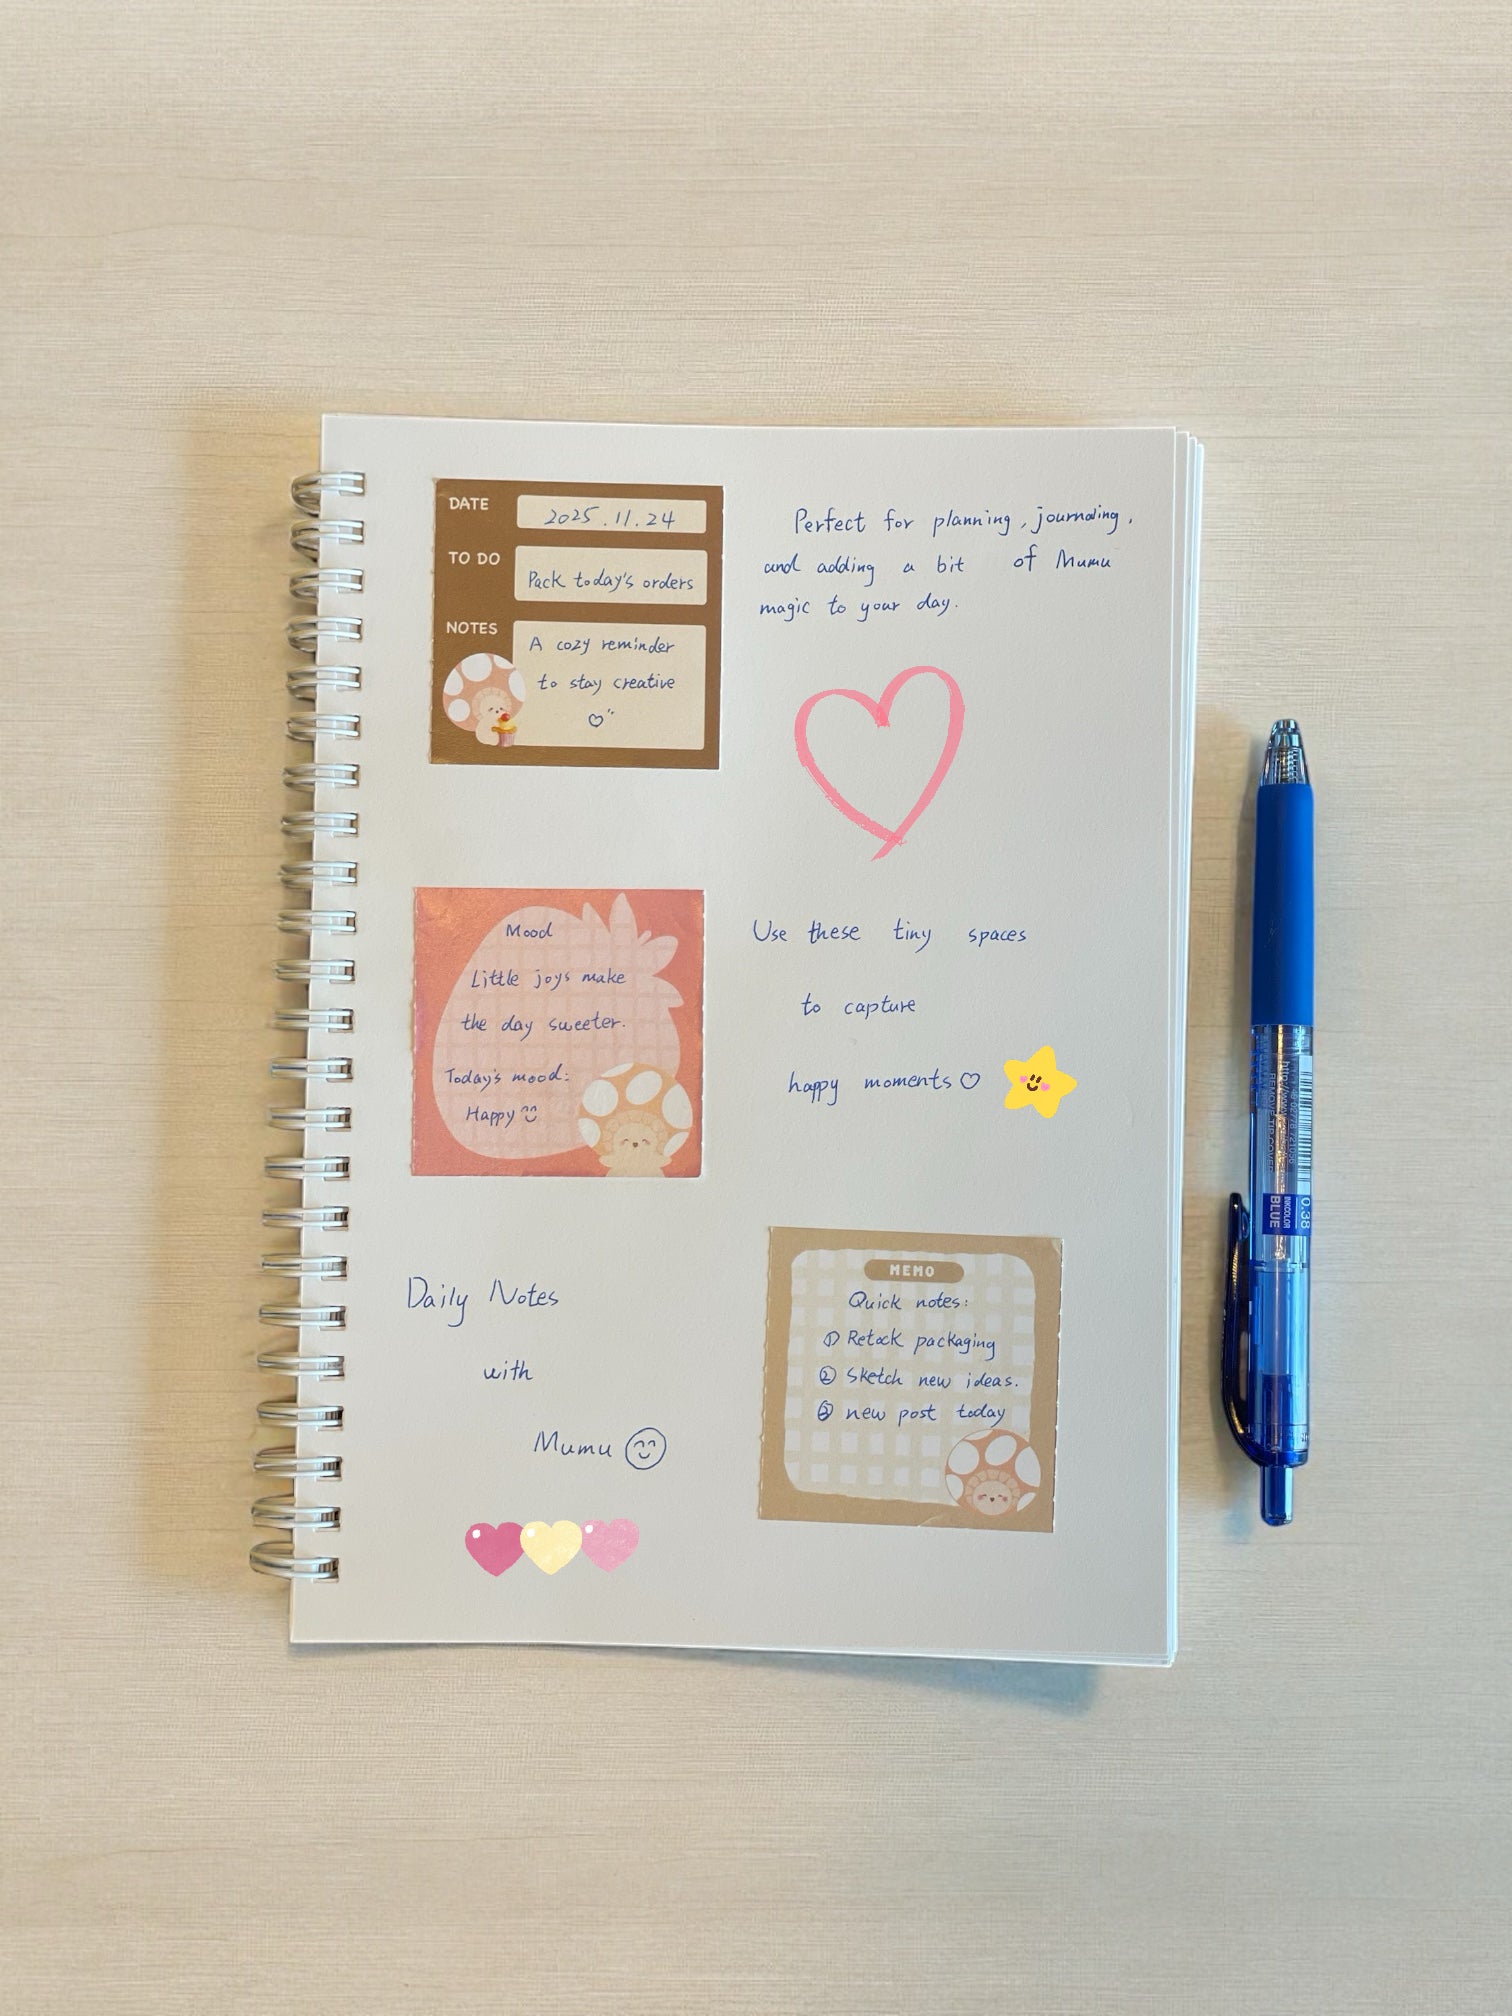 DATE
2025.11.24
TO DO
Pack today's orders
NOTES
A cozy reminder
to stay creative
Perfect for planning, journaling,
and adding a bit of Mumu
magic to your day.
Mood
Little joys make
the day sweeter.
Today's mood:
Happy
Use these tiny spaces
to capture
happy moments
Daily Notes
with
Mumu
MEMO
Quick notes:
① Retock packaging
② Sketch new ideas.
③ new post today
0.38
INKCOLOR
BLUE